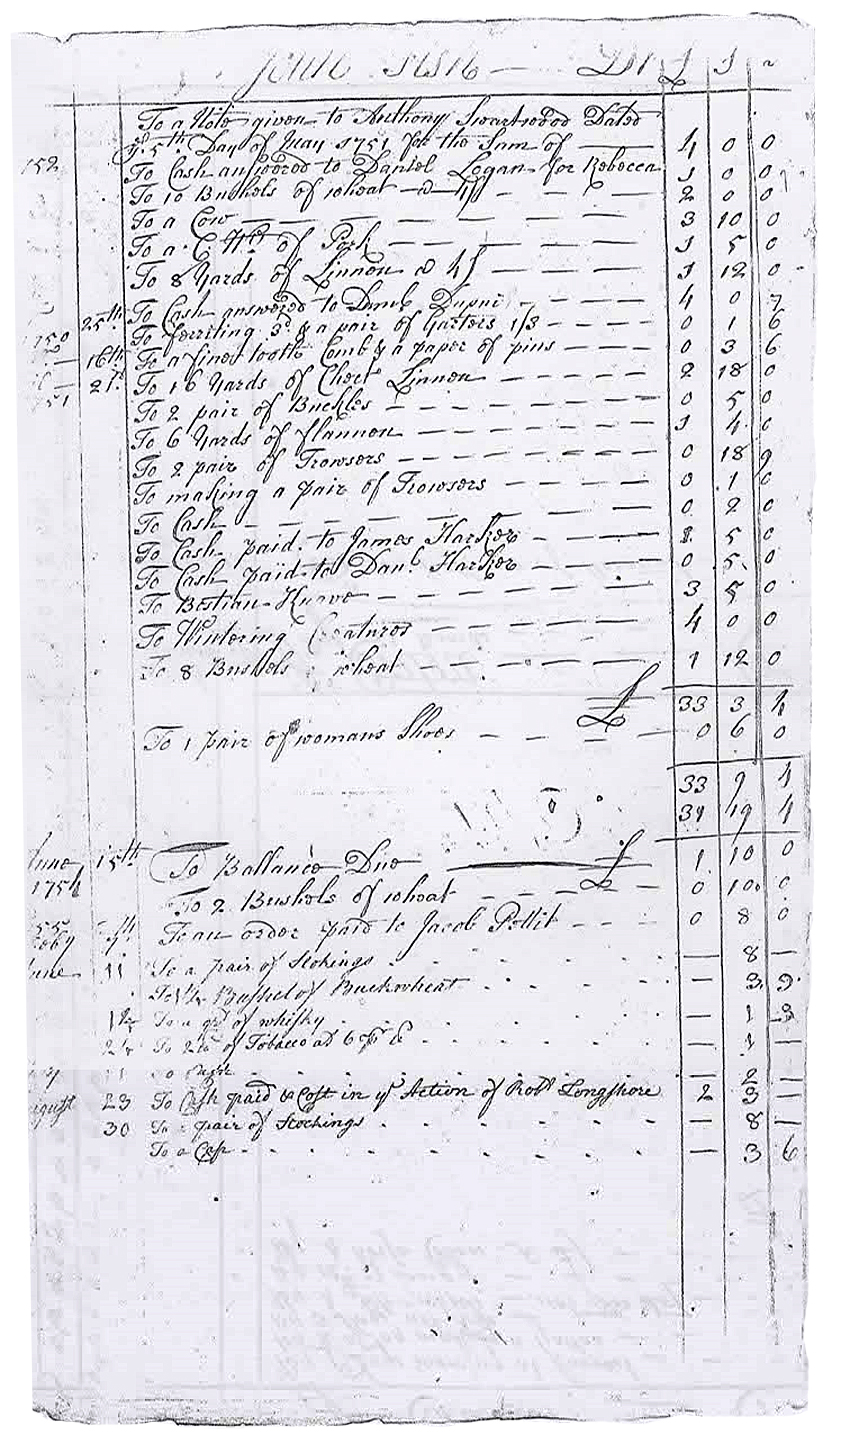 John Fish — Dr £ S
To a Note given to Anthony Swartwood Dated
ye 5th Day of May 1751 for the Sum of — 4 0 0
152 To Cash answered to Daniel Logan for Rebecca 1 0 0
To 10 Bushels of wheat @ 4/ — 2 0 0
To a Cow — 3 10 0
To a C Wt of Pork — 1 5 0
To 8 Yards of Linnon @ 4/ — 1 12 0
25th To Cash answered to Dupui — 4 0 7
1750 To ferriting 3d & a pair of Garters 1/3 — 0 1 6
16th To a fine tooth Comb & a paper of pins — 0 3 6
1751 21st To 16 Yards of Check Linnon — 2 18 0
To 2 pair of Buckles — 0 5 0
To 6 Yards of flannon — 1 4 0
To 2 pair of Trowsers — 0 18 9
To making a pair of Trowsers — 0 1 0
To Cash — 0 2 0
To Cash paid to James Harker — 5 0
To Cash paid to Danl Harker — 0 5 0
To Bastian — 3 5 0
To Wintering Creatures — 4 0 0
To 8 Bushels wheat — 1 12 0
£ 33 3 4
To 1 pair of womans Shoes — 0 6 0
33 9 4
31 19 4
June 15th To Ballance Due — £ 1 10 0
1754 To 2 Bushels of wheat — 0 10 0
To an order paid to Jacob Pettit — 0 8 0
55
June 11 To a pair of Stokings — 8 —
To 1/2 Bushel of Buckwheat — 3 9
12 To a qrt of whisky — 1 3
To of Tobacco at 6 — 1 —
To Cash — 2 —
August 23 To Cash paid & Cost in ye Action of Robt Longshore 2 3 —
30 To a pair of Stockings — 8 —
To a Cap — 3 6